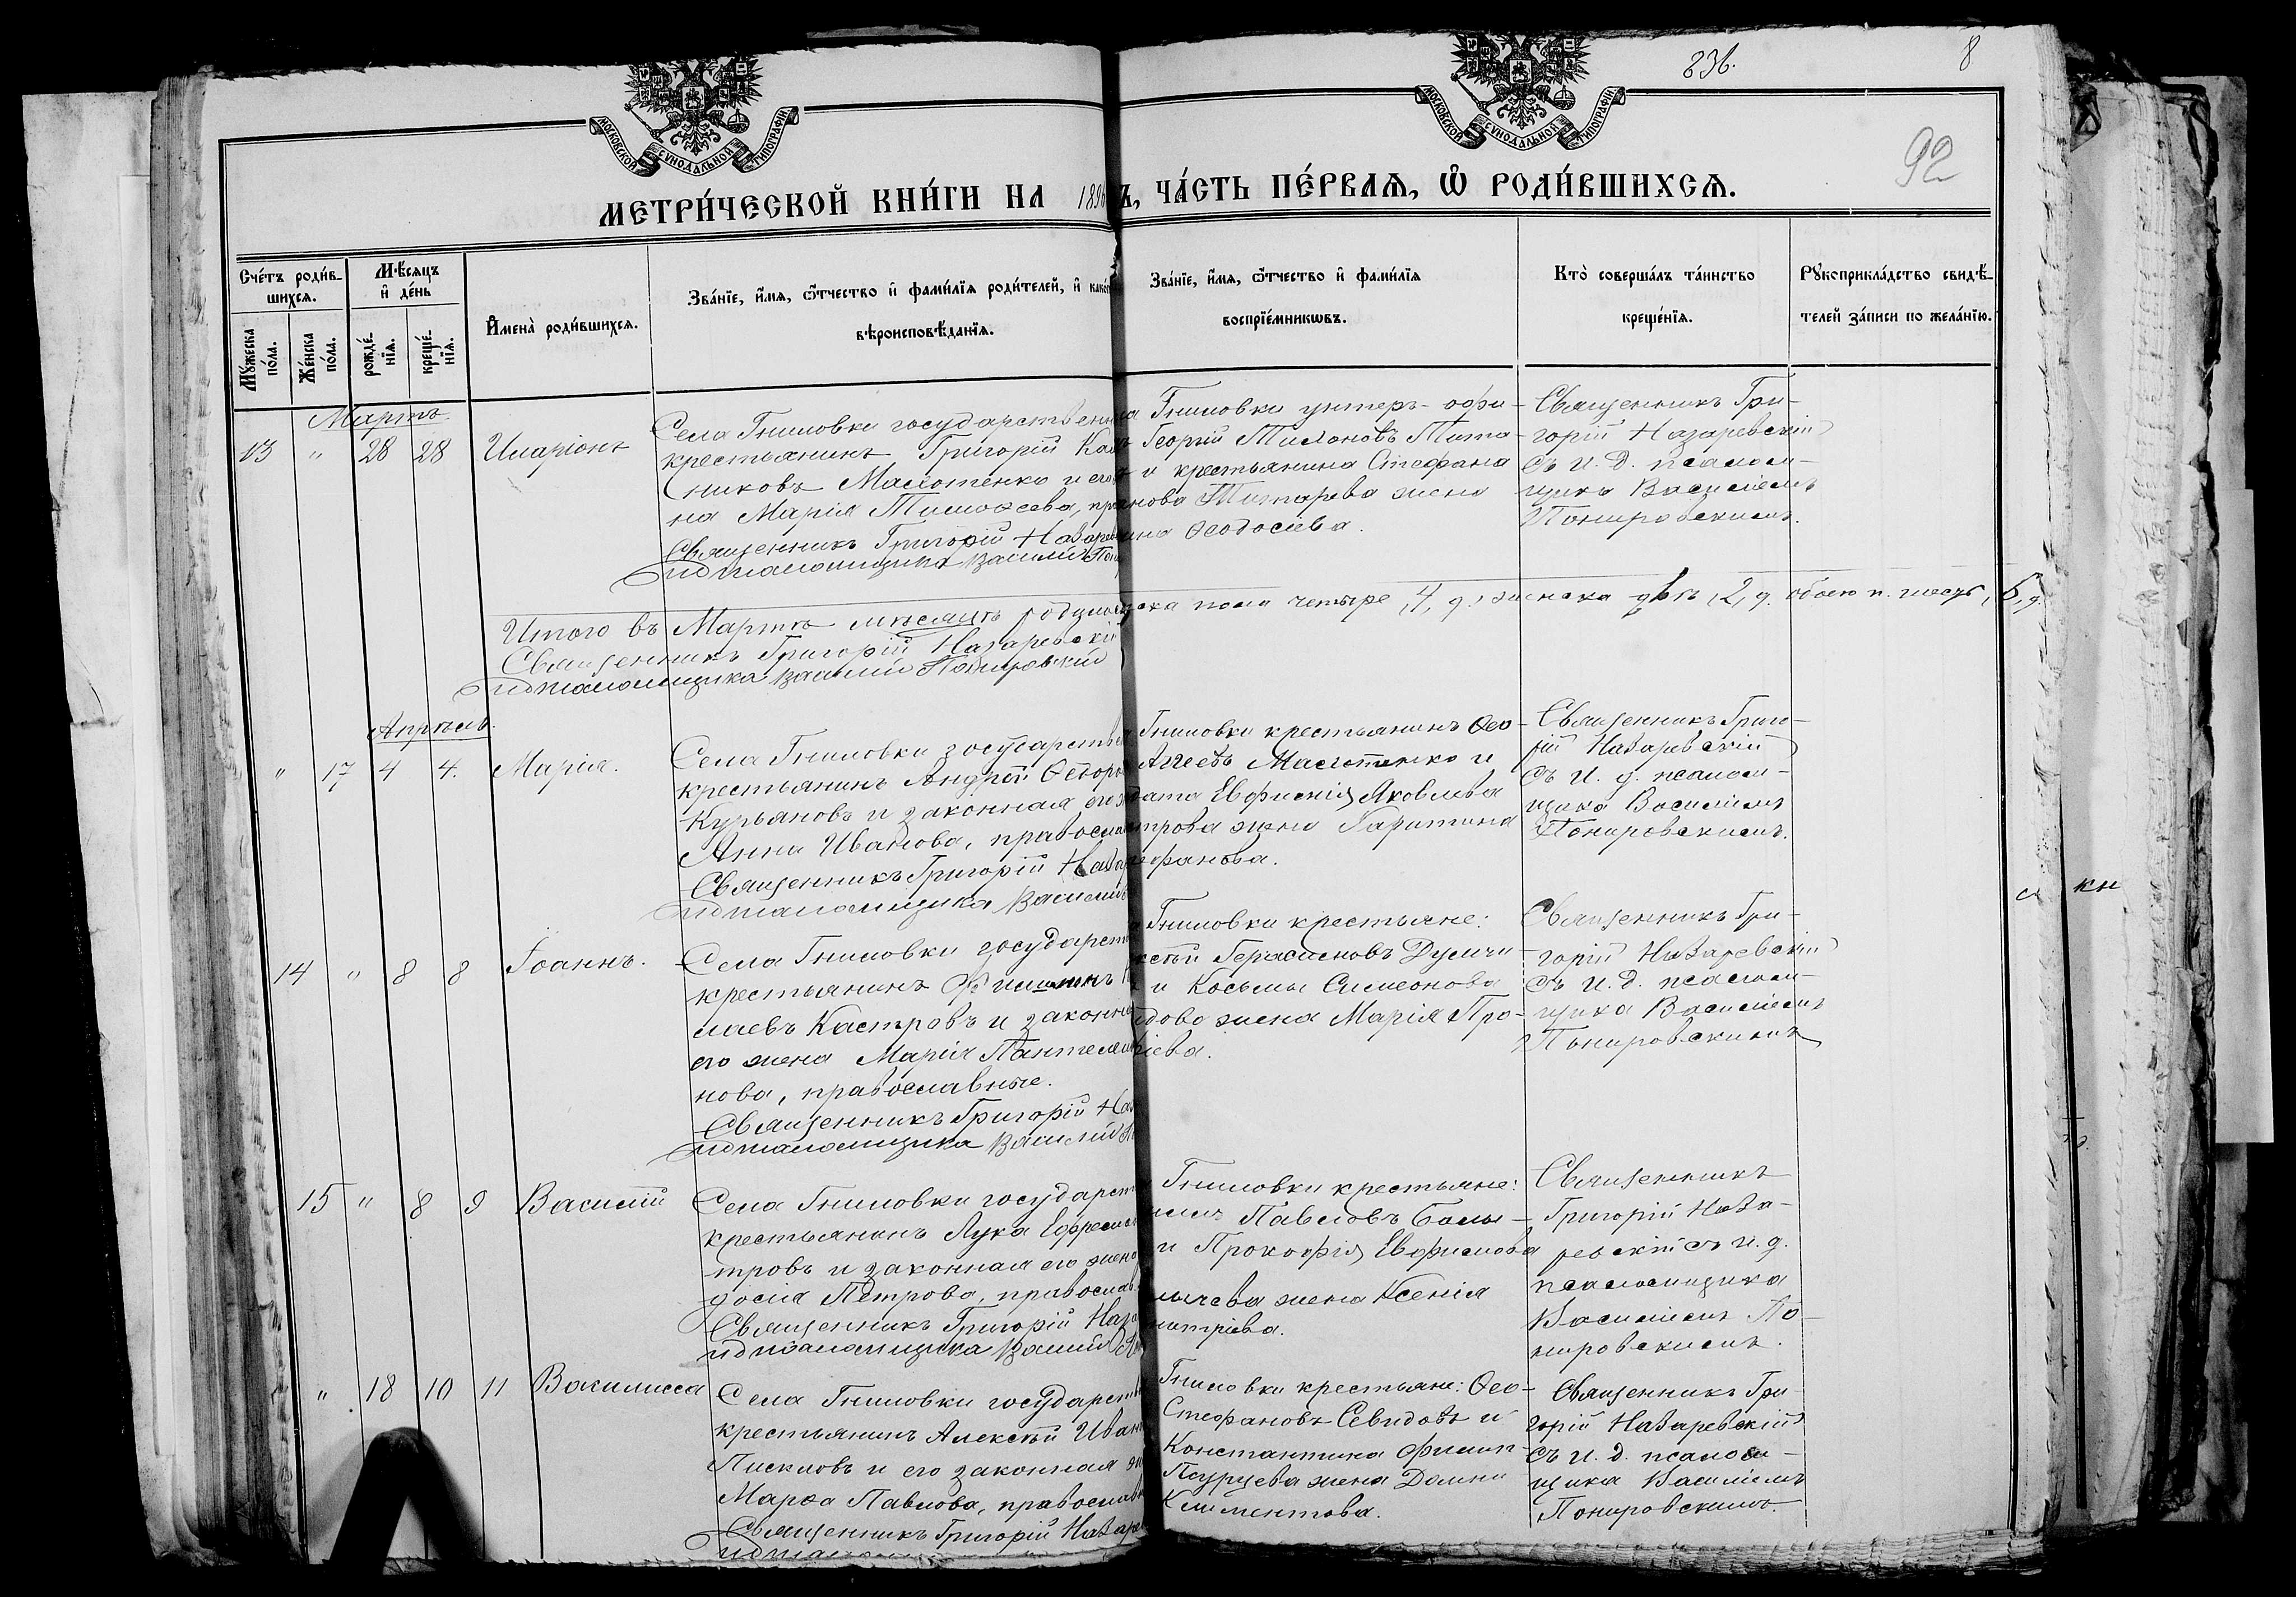 836.
8
92
МОСКОВСКОЙ СѴНОДАЛЬНОЙ ТИПОГРАФІИ
МОСКОВСКОЙ СѴНОДАЛЬНОЙ ТИПОГРАФІИ
МЕТРИ́ЧЕСКОЙ КНИ́ГИ НА 1896 Ъ, ЧА́СТЬ ПЕ́РВАѦ, Ѡ҆ РОДИ́ВШИХСѦ.
Сче́тъ роди́в-
шихсѧ.
Мꙋ́жеска по́ла.
Же́нска по́ла.
Мѣ́сѧцъ и҆ де́нь
рожде́-нїѧ.
креще́-нїѧ.
И҆мена̀ роди́вшихсѧ.
Зва́нїе, и҆́мѧ, ѻ҆́тчество и҆ фами́лїѧ роди́телей, и҆ како
вѣроисповѣ́данїѧ.
Зва́нїе, и҆́мѧ, ѻ҆́тчество и҆ фами́лїѧ
воспрїе́мникѡвъ.
Кто̀ соверша́лъ та́инство
креще́нїѧ.
Рꙋкоприкла́дство свидѣ́-
телей за́писи по жела́нїю.
Мартъ
13 " 28 28 Иларіонъ
Села Гниловки государствен
крестьянинъ Григорій
никовъ Малютенко и его
на Марія Тимоѳеева, пр
Священникъ Григорій Назарев
ид псаломщика Василій Пон
Гниловки унтеръ-офи-
Георгій
и крестьянина Стефана
нова Титарева жена
Ѳеодосіева.
Священникъ Гри-
горій Назаревскій
съ и. д. псалом-
щика Василіемъ
Понировскимъ.
Итого въ Мартѣ мѣсяцѣ родилось
ска пола четыре, 4, д., женска двѣ, 2, д. обоего п. шесть, 6, д.
Священникъ Григорій Назаревскій
ид псаломщика Василій Понировскій
Апрѣль.
" 17 4 4. Марія.
Села Гниловки государствен
крестьянинъ Андрей Ѳедоро
Курьяновъ и законная его
Анна Иванова, правосла
Священникъ Григорій Назар
ид псаломщика Василій
Гниловки крестьянинъ Ѳео-
Малютенко и
Евфимія Яковлева
трова жена Харитина
фанова.
Священникъ Григо-
рій Назаревскій
съ и. д. псалом-
щика Василіемъ
Понировскимъ.
14 " 8 8 Іоаннъ.
Села Гниловки государст
крестьянинъ Филиппъ
лаевъ Кастровъ и законна
его жена Марія Пантелеи
нова, православные.
Священникъ Григорій Наз
ид псаломщика Василій
Гниловки крестьяне:
ксѣй Герасимовъ Думчи-
и Косьмы Симеонова
дова жена Марія Про-
іева.
Священникъ Гри-
горій Назаревскій
съ и. д. псалом-
щика Василіемъ
Понировскимъ
15 " 8 9 Василій
Села Гниловки государст
крестьянинъ Лука Ефрем
тровъ и законная его жена
досія Петрова, правосла
Священникъ Григорій Наза
ид псаломщика Василій
Гниловки крестьяне:
Павловъ Болы-
и Прокофія Евфимова
лычева жена Ксенія
митріева.
Священникъ
Григорій Наза-
ревскій съ и. д.
псаломщика
Василіемъ По-
нировскимъ.
" 18 10 11 Василисса
Села Гниловки государств
крестьянинъ Алексѣй Иван
Пискловъ и его законная
Марѳа Павлова, правосла
Священникъ Григорій Назаре
Гниловки крестьяне: Ѳео-
Стефановъ Севидовъ и
Константина Филип-
Псурцева жена Домна
Климентова.
Священникъ Гри-
горій Назаревскій
съ и. д. псалом-
щика Василіемъ
Понировскимъ.
кн